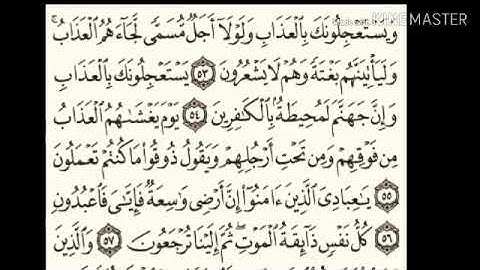 KINEMASTER
وَيَسْتَعْجِلُونَكَ بِالْعَذَابِ وَلَوْلَا أَجَلٌ مُّسَمًّى لَّجَاءَهُمُ الْعَذَابُ
وَلَيَأْتِيَنَّهُم بَغْتَةً وَهُمْ لَا يَشْعُرُونَ ٥٣ يَسْتَعْجِلُونَكَ بِالْعَذَابِ
وَإِنَّ جَهَنَّمَ لَمُحِيطَةٌ بِالْكَافِرِينَ ٥٤ يَوْمَ يَغْشَاهُمُ الْعَذَابُ
مِن فَوْقِهِمْ وَمِن تَحْتِ أَرْجُلِهِمْ وَيَقُولُ ذُوقُوا مَا كُنتُمْ تَعْمَلُونَ
٥٥ يَاعِبَادِيَ الَّذِينَ ءَامَنُوا إِنَّ أَرْضِي وَاسِعَةٌ فَإِيَّايَ فَاعْبُدُونِ
٥٦ كُلُّ نَفْسٍ ذَائِقَةُ الْمَوْتِ ثُمَّ إِلَيْنَا تُرْجَعُونَ ٥٧ وَالَّذِينَ